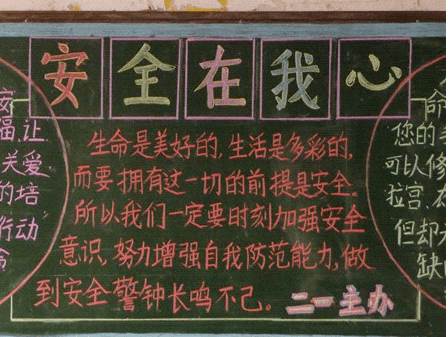 安全在我心
生命是美好的,生活是多彩的,
而要拥有这一切的前提是安全.
所以我们一定要时刻加强安全
意识,努力增强自我防范能力,做
到安全警钟长鸣不已。
二一主办
福,让
关爱
的培
行动
命
您的
可以修
拉宫,在
但却
缺